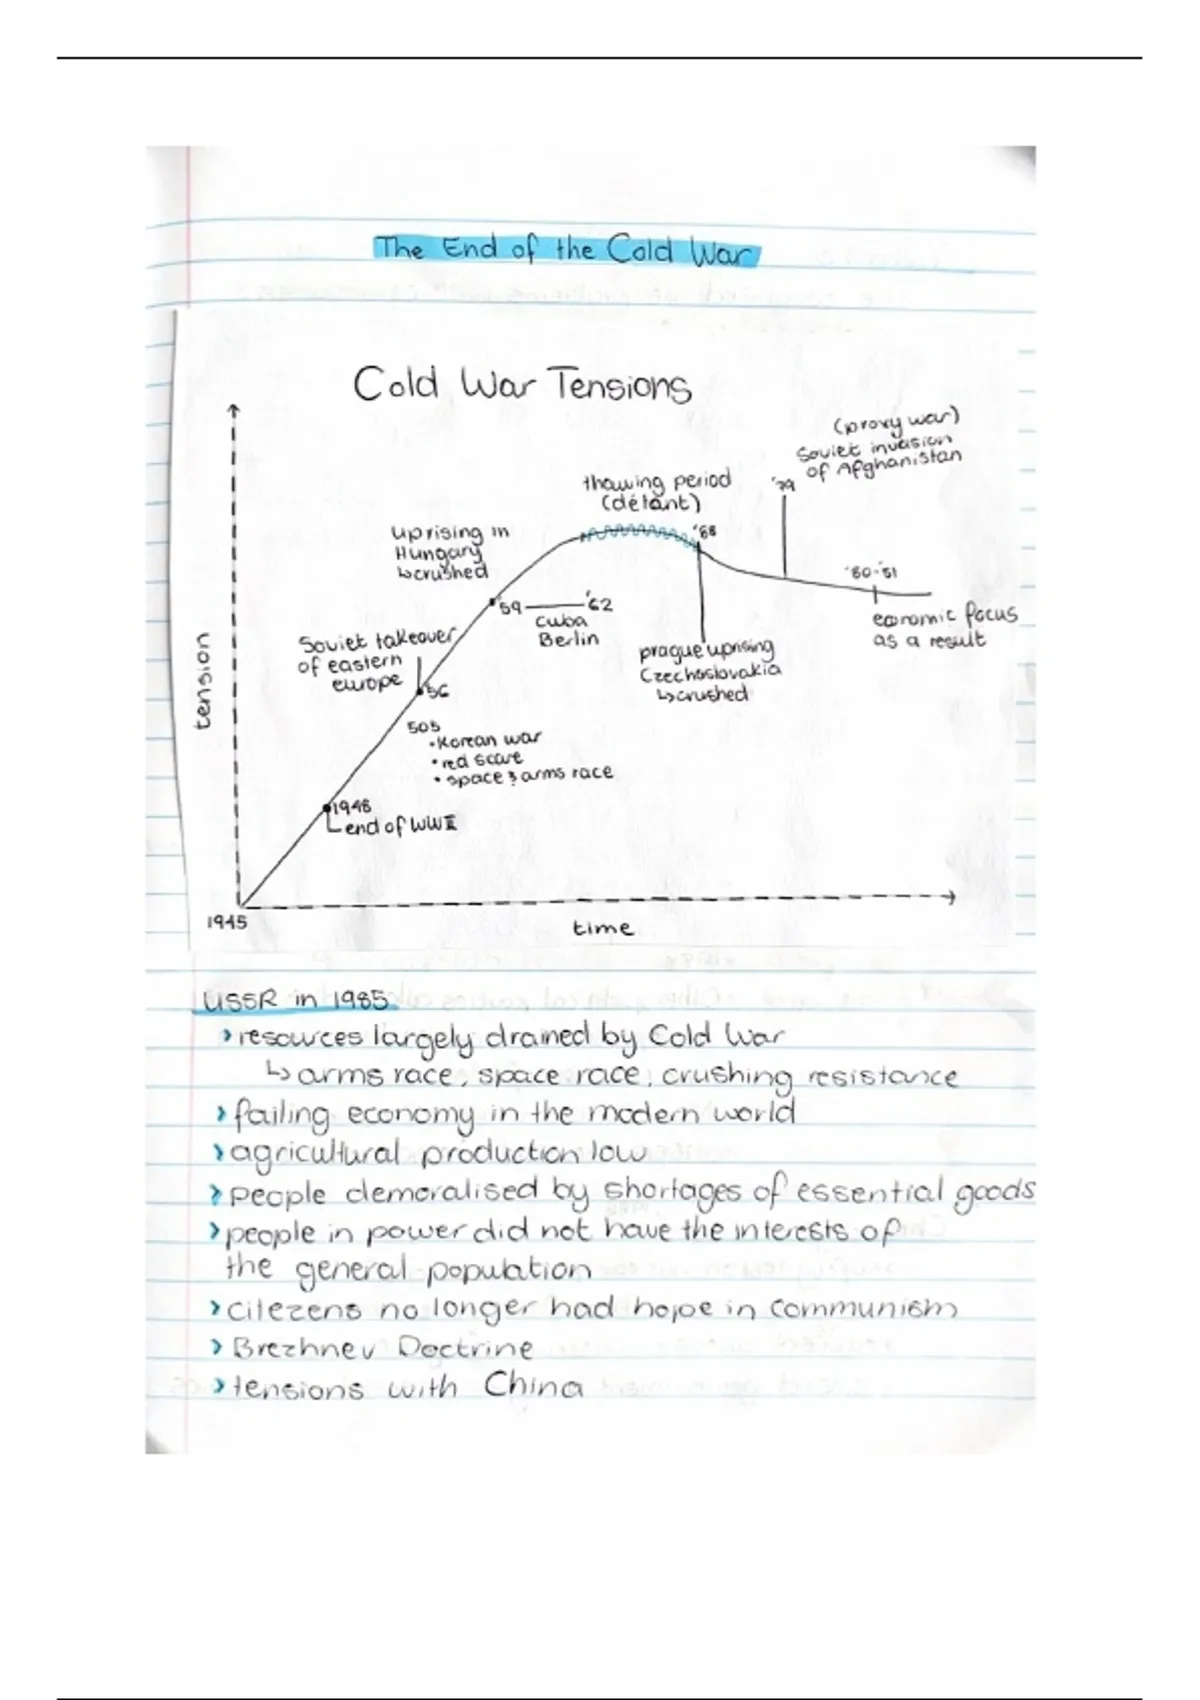 The End of the Cold War
Cold War Tensions
(proxy war)
Soviet invasion
of Afghanistan
'79
thawing period
(détant)
'68
uprising in
Hungary
↳crushed
'80-'81
economic focus
as a result
'59 — '62
Cuba
Berlin
prague uprising
Czechoslovakia
↳crushed
Soviet takeover
of eastern
europe
'56
50s
•Korean war
•red scare
•space & arms race
1948
end of WWII
tension
1945
time
USSR in 1985
›resources largely drained by Cold War
↳arms race, space race, crushing resistance
›failing economy in the modern world
›agricultural production low
›people demoralised by shortages of essential goods
›people in power did not have the interests of
the general population
›citezens no longer had hope in communism
›Brezhnev Doctrine
›tensions with China